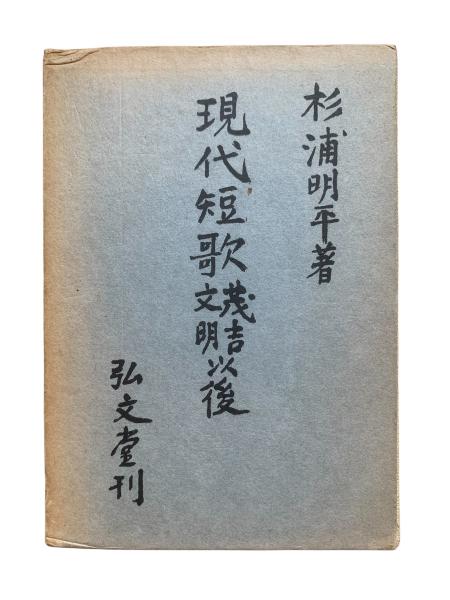 杉浦明平著
現代短歌茂吉文明以後
弘文堂刊